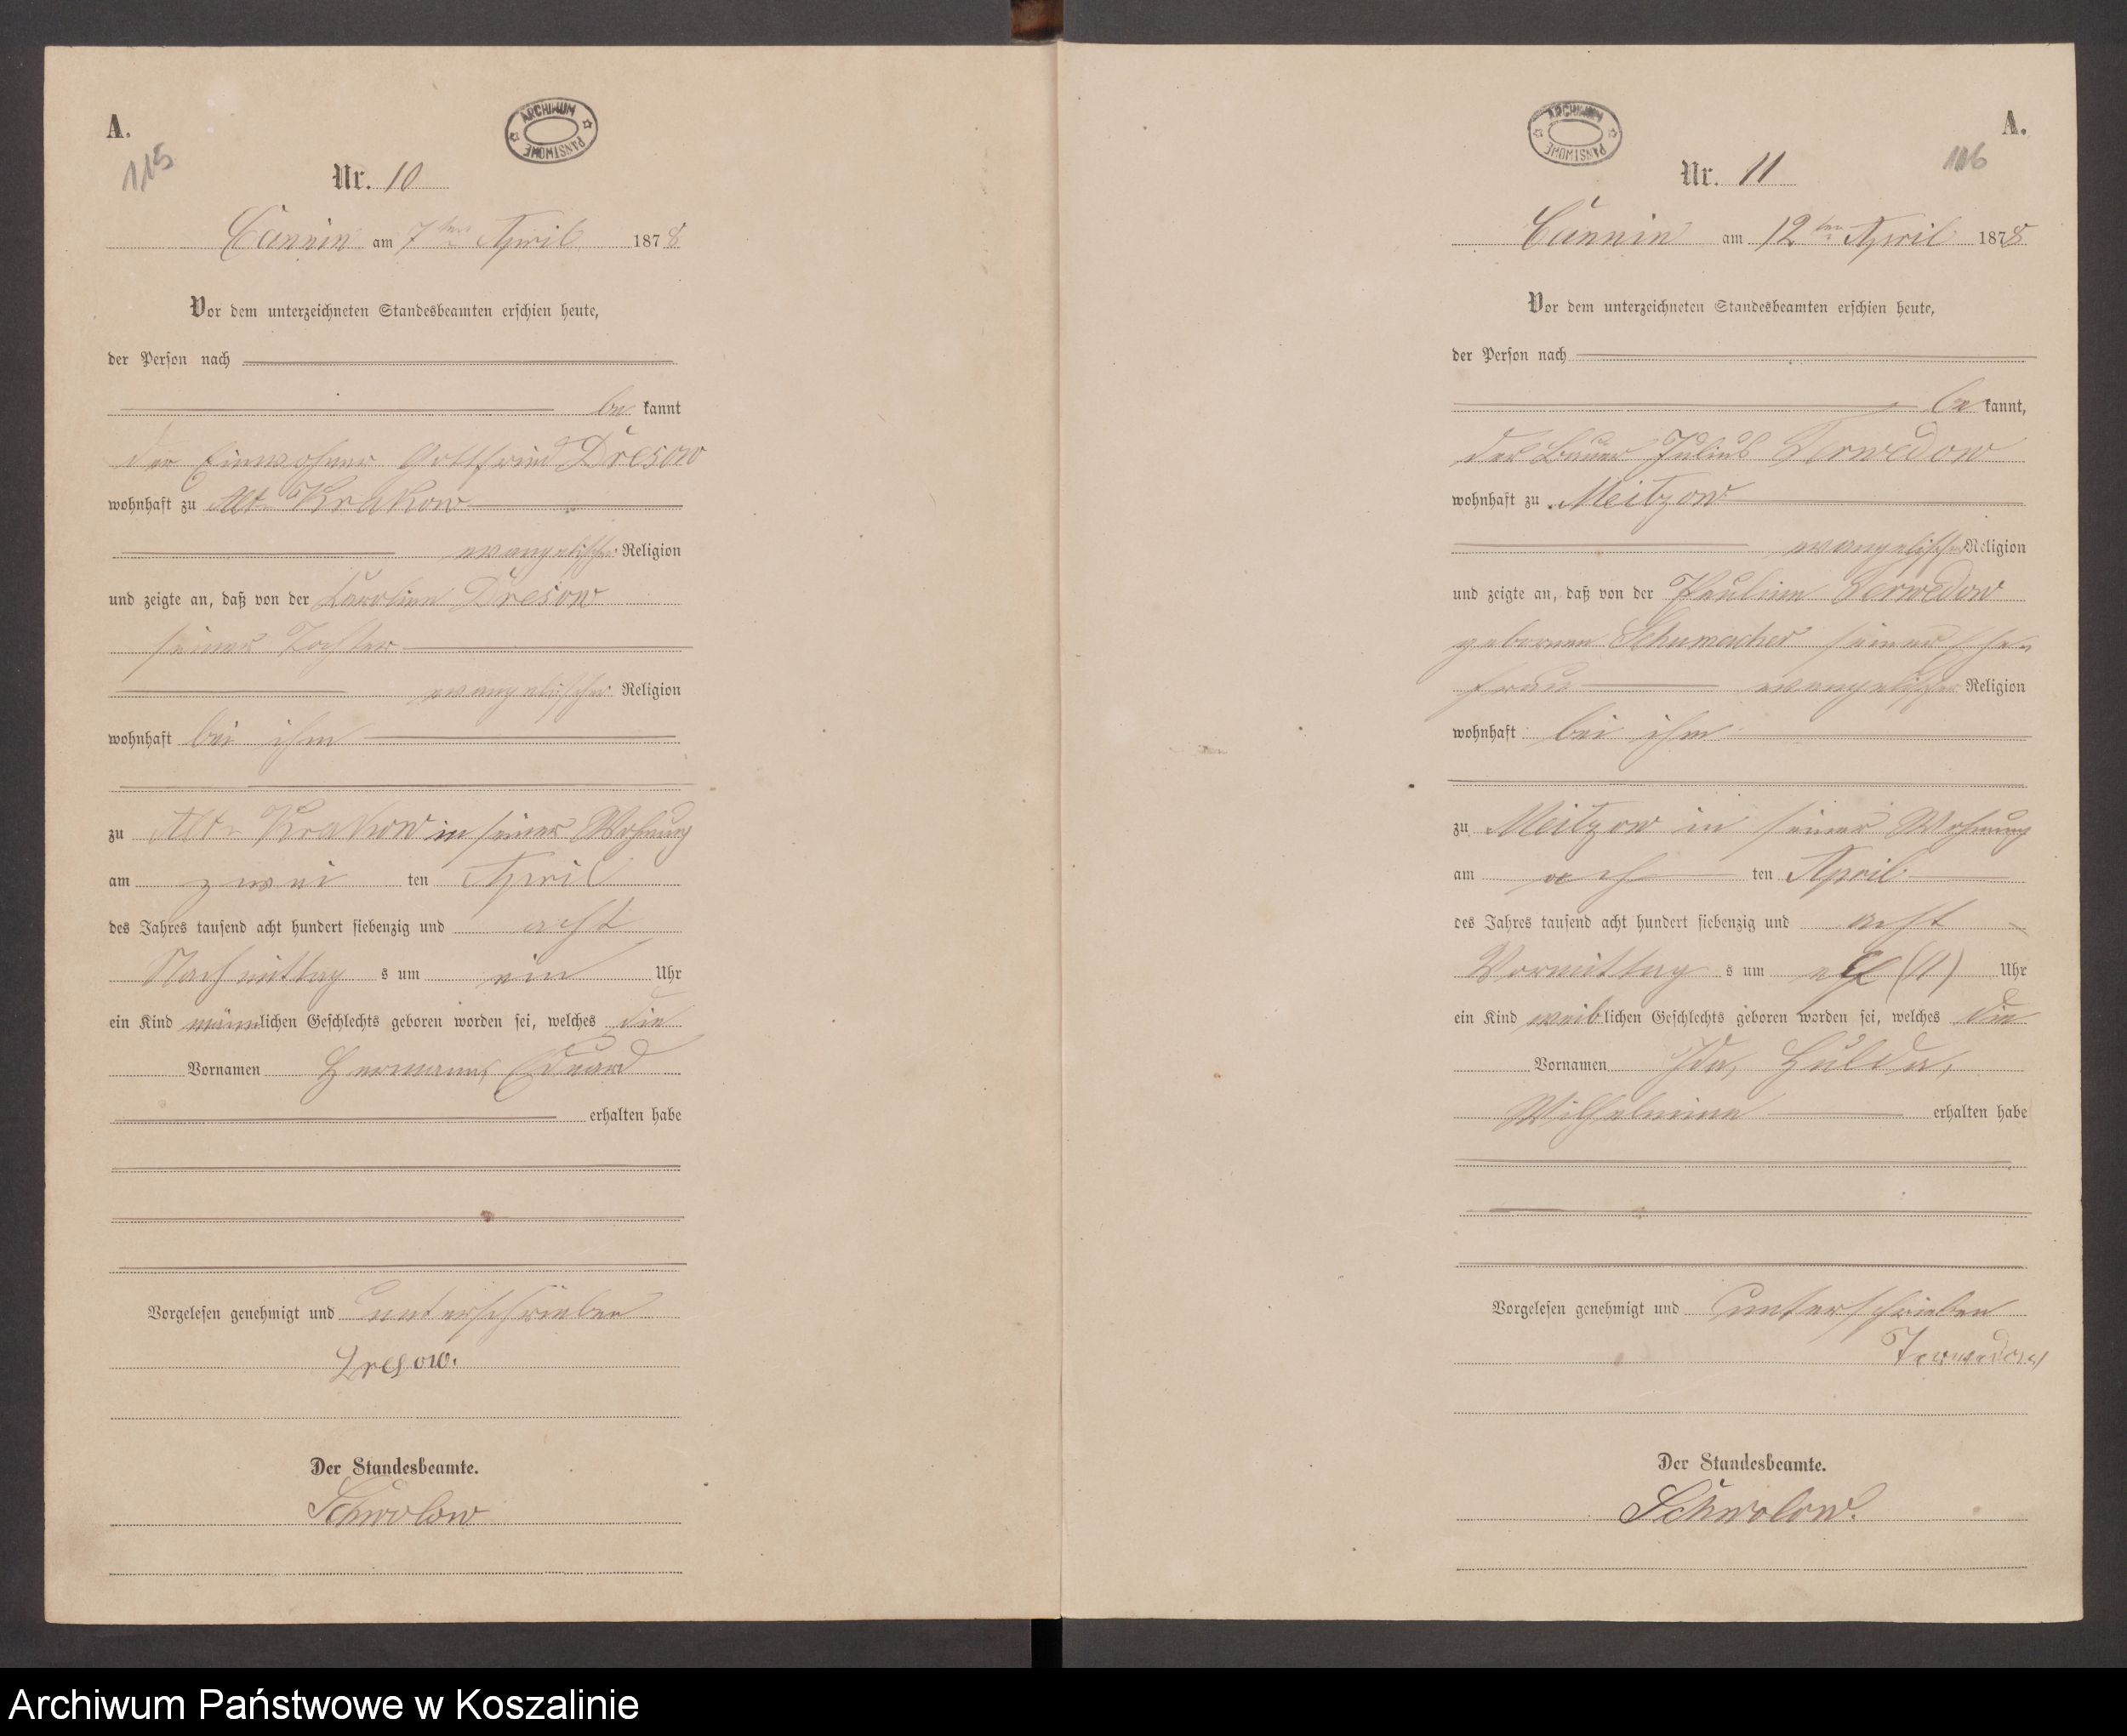 A.
115
ARCHIWUM PAŃSTWOWE
Nr. 10
Cannin am 7ten April 1878
Vor dem unterzeichneten Standesbeamten erschien heute,
der Person nach
be kannt
der Einwohner Gottfried Dresow
wohnhaft zu Alt Krakow
evangelischer Religion
und zeigte an, daß von der Karoline Dresow
seiner Tochter
evangelischer Religion
wohnhaft bei ihm
zu Alt Krakow in seiner Wohnung
am zwei ten April
des Jahres tausend acht hundert siebenzig und acht
Nachmittag s um ein Uhr
ein Kind männlichen Geschlechts geboren worden sei, welches die
Vornamen Hermann, Eduard
erhalten habe
Vorgelesen genehmigt und unterschrieben
Dresow.
Der Standesbeamte.
Schwolow
A.
116
ARCHIWUM PAŃSTWOWE
Nr. 11
Cannin am 12ten April 1878
Vor dem unterzeichneten Standesbeamten erschien heute,
der Person nach
be kannt,
der Bauer Julius Terwedow
wohnhaft zu Meitzow
evangelischer Religion
und zeigte an, daß von der Pauline Terwedow
geborene Schumacher seiner Ehe-
frau evangelischer Religion
wohnhaft bei ihm
zu Meitzow in seiner Wohnung
am ach ten April
des Jahres tausend acht hundert siebenzig und acht
Vormittag s um elf (11) Uhr
ein Kind weiblichen Geschlechts geboren worden sei, welches die
Vornamen Ida, Hulda,
Wilhelmine erhalten habe
Vorgelesen genehmigt und unterschrieben
Terwedow
Der Standesbeamte.
Schwolow.
Archiwum Państwowe w Koszalinie